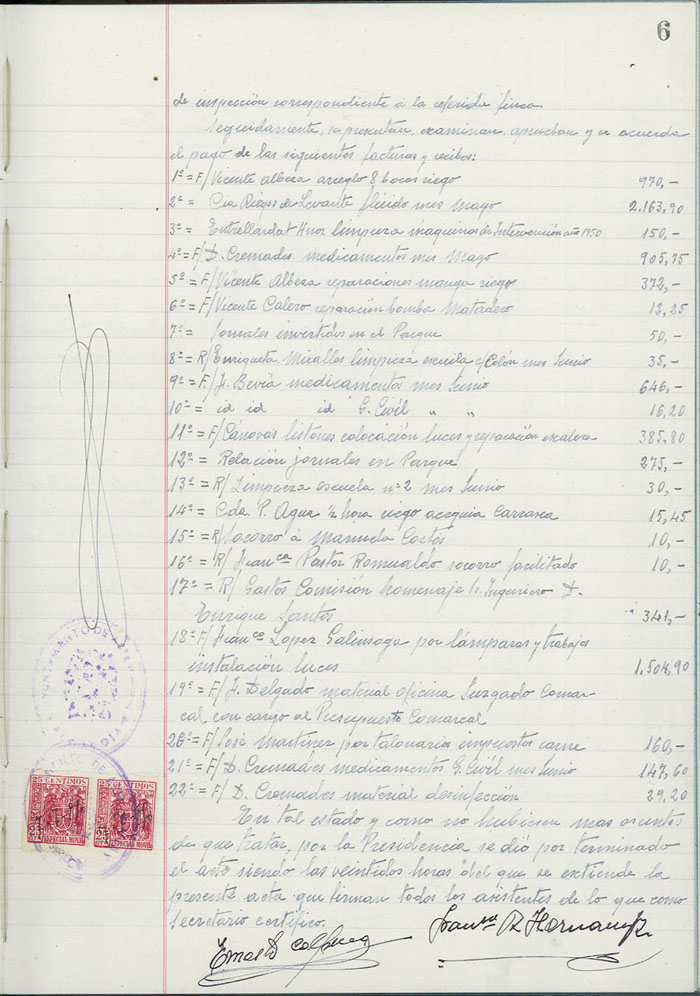 6
de inspección correspondiente á la referida finca.
Seguidamente, se presentan, examinan, aprueban y se acuerda
el pago de las siguientes facturas y recibos:
1º = F/ Vicente Albeza arreglo 8 bocas riego 970,-
2º = Cia Riegos de Levante flúido mes Mayo 2.163,90
3º = Entrellardat Hnos limpieza maquinas de Intervención año 1950 150,-
4º = F/ D. Cremades medicamentos mes Mayo 905,75
5º = F/ Vicente Albeza reparaciones manga riego 372,-
6º = F/ Vicente Calero reparación bomba Matadero 12,25
7º = Jornales invertidos en el Parque 50,-
8º = R/ Enriqueta Miralles limpieza escuela c/ Colón mes Junio 35,-
9º = F/ J. Beviá medicamentos mes Junio 646,-
10º = id id id G. Civil " " 16,20
11º = F/ Cánovas listones colocación luces y reparación escalera 385,80
12º = Relación jornales en Parque 275,-
13º = R/ Limpieza escuela nº 2 mes Junio 30,-
14º = Cda. P. Agua ½ hora riego acequia Carrasca 15,45
15º = R/ Socorro á Manuela Cortés 10,-
16º = R/ Franca Pastor Romualdo socorro facilitado 10,-
17º = R/ Gastos Comisión homenaje Sr. Ingeniero D.
Enrique Santos 341,-
18º F/ Franco López Galinsoga por lámparas y trabajos
instalación luces 1.504,90
19º = F/ J. Delgado material oficina Juzgado Comar-
cal con cargo al Presupuesto Comarcal
20º = F/ José Martinez por talonarios impuestos carne 160,-
21º = F/ D. Cremades medicamentos G. Civil mes Junio 147,60
22º = F/ D. Cremades material desinfección 29,20
En tal estado y como no hubiesen mas asuntos
de que tratar, por la Presidencia se dió por terminado
el acto siendo las veintidos horas del que se extiende la
presente acta que firman todos los asistentes de lo que como
Secretario certifico.
AYUNTAMIENTO DE
25 CENTIMOS
ESPECIAL MOVIL
25 CENTIMOS
ESPECIAL MOVIL